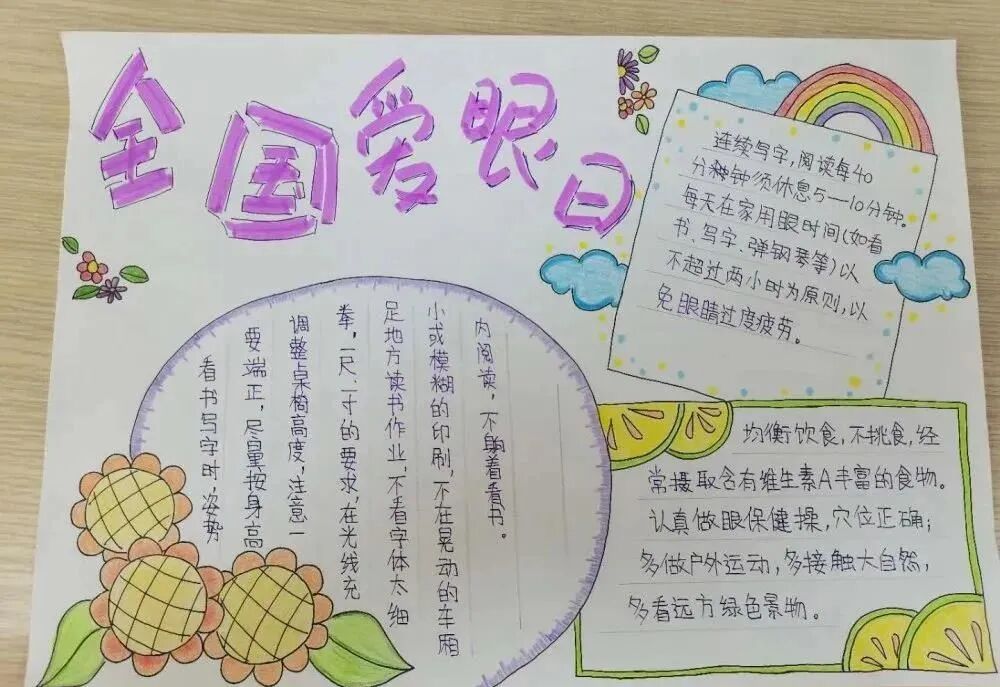 全国爱眼日
连续写字,阅读每40
分种钟须休息5—10分钟。
每天在家用眼时间(如看
书、写字、弹钢琴等)以
不超过两小时为原则,以
免眼睛过度疲劳。
看书写字时,姿势
要端正,尽量按身高
调整桌椅高度,注意一
拳,一尺、一寸的要求,在光线充
足地方读书作业、不看字体太细
小或模糊的印刷,不在晃动的车厢
内阅读,不躺着看书。
均衡饮食,不挑食,经
常摄取含有维生素A丰富的食物。
认真做眼保健操,穴位正确;
多做户外运动,多接触大自然,
多看远方绿色景物。